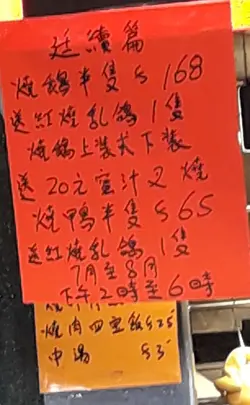 延續篇
燒鵝半隻$168
送紅燒乳鴿1隻
燒鵝上裝或下裝
送20元蜜汁叉燒
燒鴨半隻$65
送紅燒乳鴿1隻
7月至8月
下午2時至6時
燒肉四寶飯$25
中湯 $5